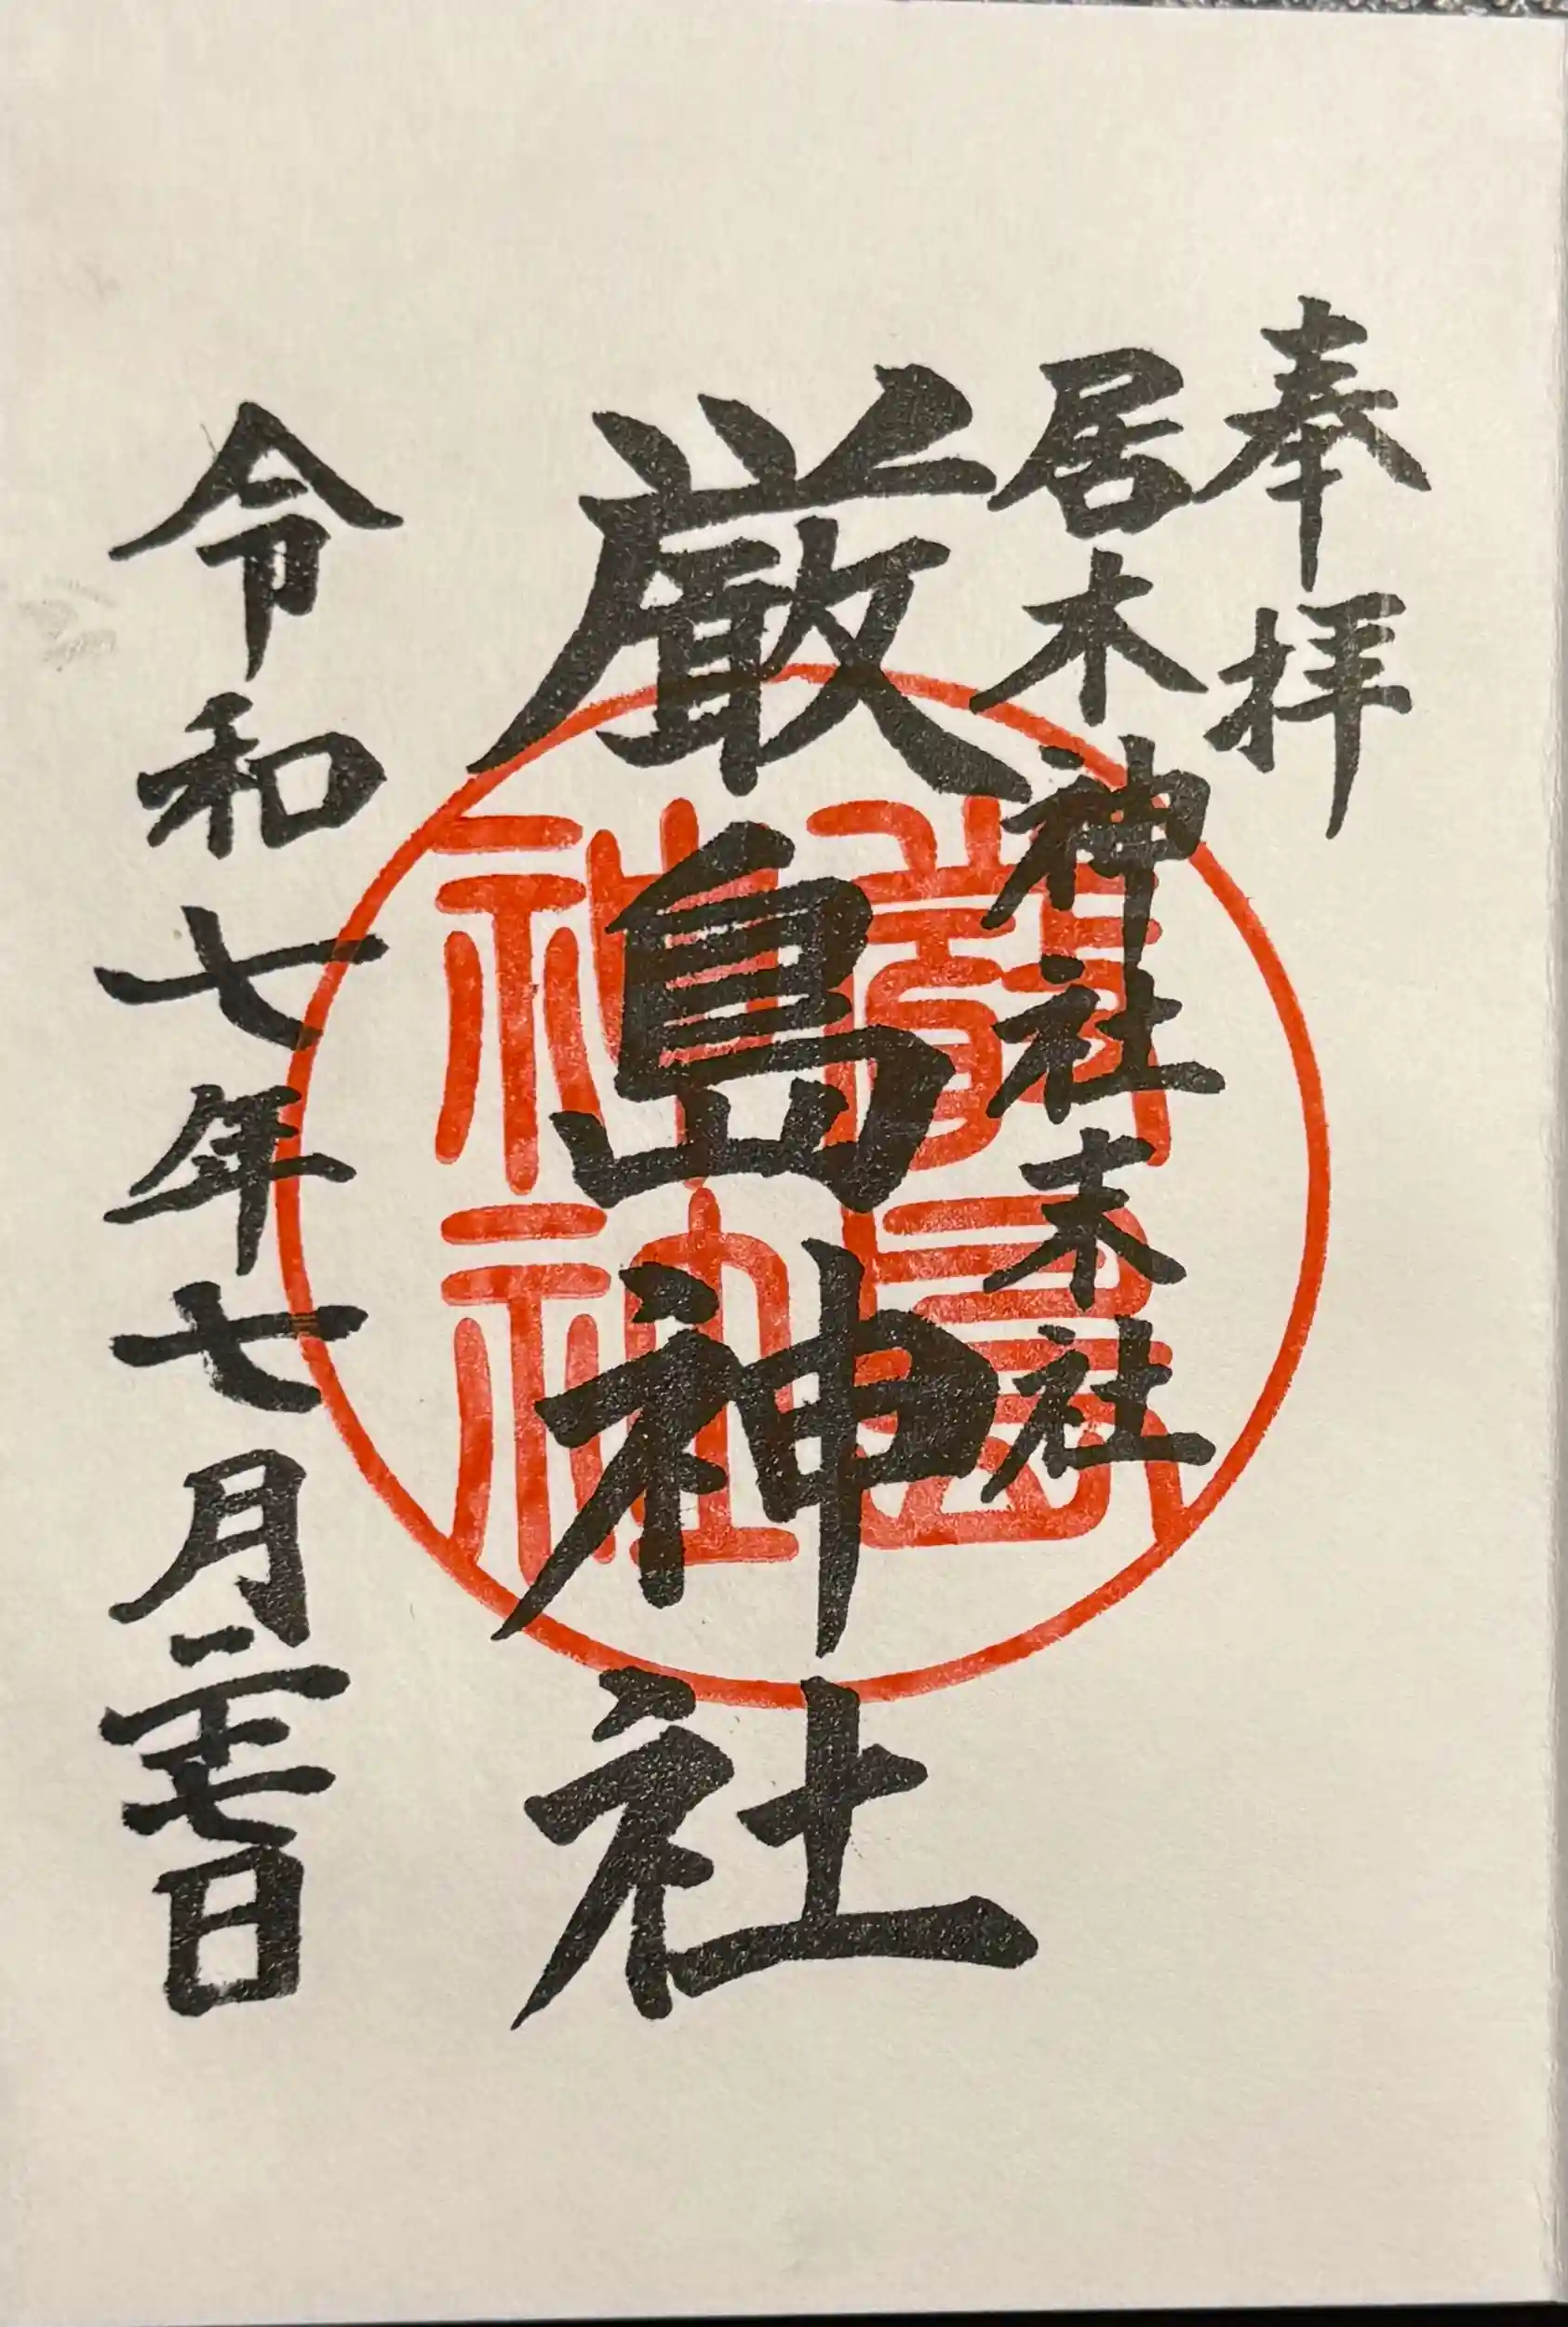 奉拝
居木神社末社
厳島神社
令和七年七月二十七日
嚴島
神社